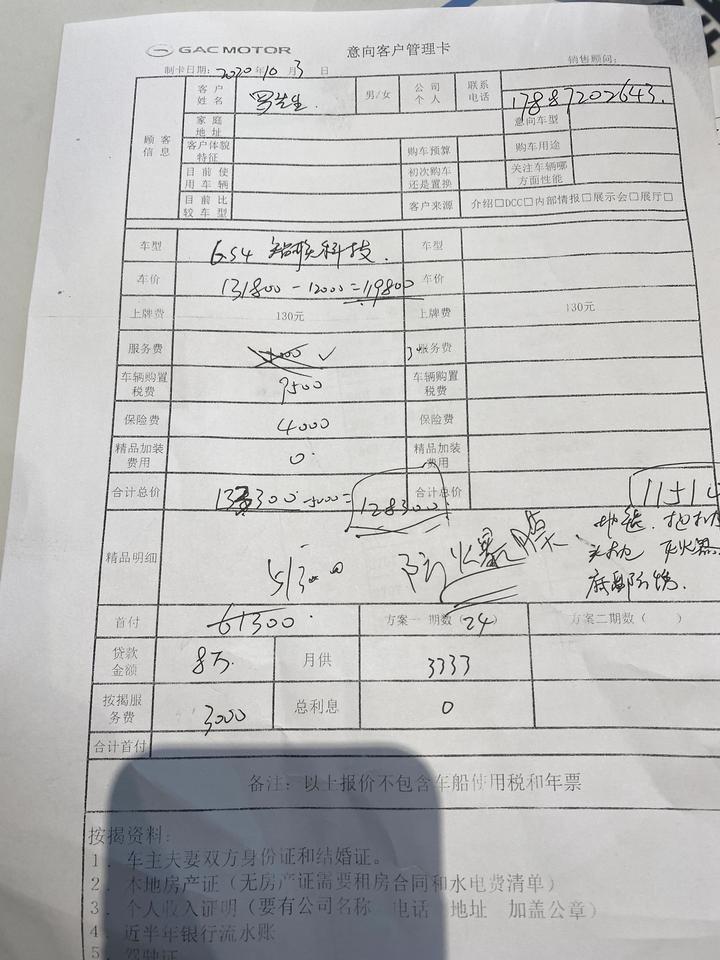 GAC MOTOR 意向客户管理卡
制卡日期：2020年10月3日 销售顾问：
顾客信息
客户姓名 罗先生. 男/女 公司个人 联系电话 17887202643.
家庭地址 意向车型
客户体貌特征 购车预算 购车用途
目前使用车辆 初次购车还是置换 关注车辆哪方面性能
目前比较车型 客户来源 介绍□DCC□内部情报□展示会□展厅□
车型 GS4 智联科技. 车型
车价 131800-12000=119800 车价
上牌费 130元 上牌费 130元
服务费 服务费
车辆购置税费 9500 车辆购置税费
保险费 4000 保险费
精品加装费用 0 精品加装费用
合计总价 133300-5000=128300 合计总价 11514
精品明细 51300 防爆膜 地毯. 灭火器
首付 61300 方案一 期数（24） 方案二期数（ ）
贷款金额 8万. 月供 3333
按揭服务费 3000 总利息 0
合计首付
备注：以上报价不包含车船使用税和年票
按揭资料：
1. 车主夫妻双方身份证和结婚证。
2. 本地房产证（无房产证需要租房合同和水电费清单）
3. 个人收入证明（要有公司名称 电话 地址 加盖公章）
4. 近半年银行流水账
5. 驾驶证